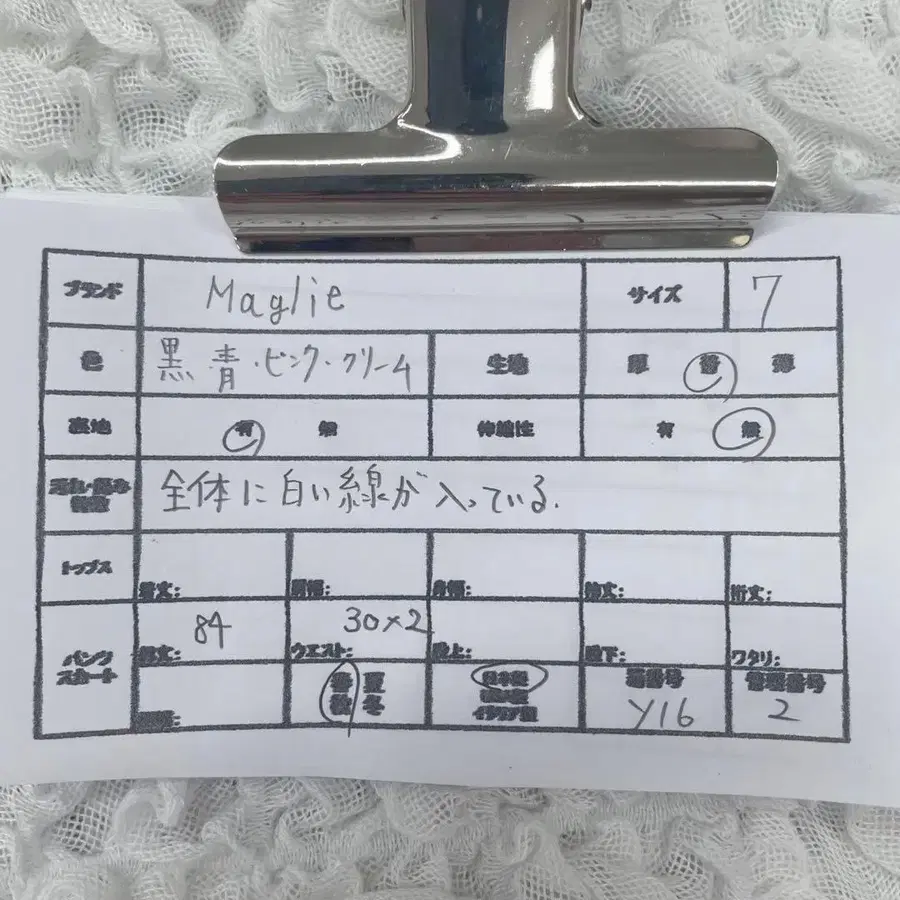 ブランド Maglie サイズ 7
色 黒 青・ピンク・クリーム 生地 厚 普 薄
裏地 有 無 伸縮性 有 無
汚れ・傷み
全体に白い線が入っている.
トップス 着丈: 肩幅: 身幅: 袖丈: 裄丈:
パンツ スカート 総丈: 84 ウエスト: 30×2 股上: 股下: ワタリ:
春 夏 秋 冬 日本製 イタリア製 箱番号 Y16 管理番号 2